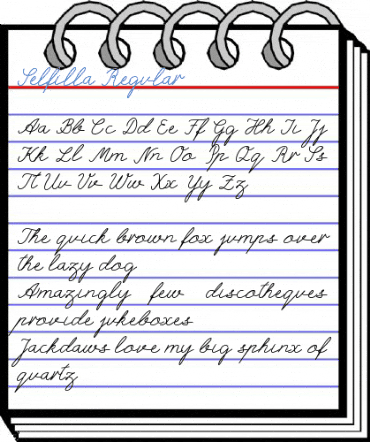 Selfilla Regular
Aa Bb Cc Dd Ee Ff Gg Hh Ii Jj
Kk Ll Mm Nn Oo Pp Qq Rr Ss
Tt Uu Vv Ww Xx Yy Zz
The quick brown fox jumps over
the lazy dog
Amazingly few discotheques
provide jukeboxes
Jackdaws love my big sphinx of
quartz